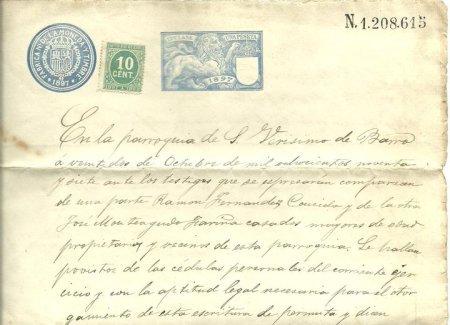 N. 1.208.615
FABRICA NAL DE LA MONEDA Y TIMBRE
1897
10
CENT.
UNA PESETA
1897
En la parroquia de S. Verisimo de Barro
a veintedos de Octubre de mil ochocientos noventa
y siete ante los testigos que se espresaran comparecen
de una parte Ramon Fernandez y de la otra
José Montenegro Fariña casados mayores de edad
propietarios y vecinos de esta parroquia. Se hallan
provistos de las cédulas personales del corriente ejer
cicio y con la aptitud legal necesaria para el otor
gamiento de esta escritura de permuta y dicen